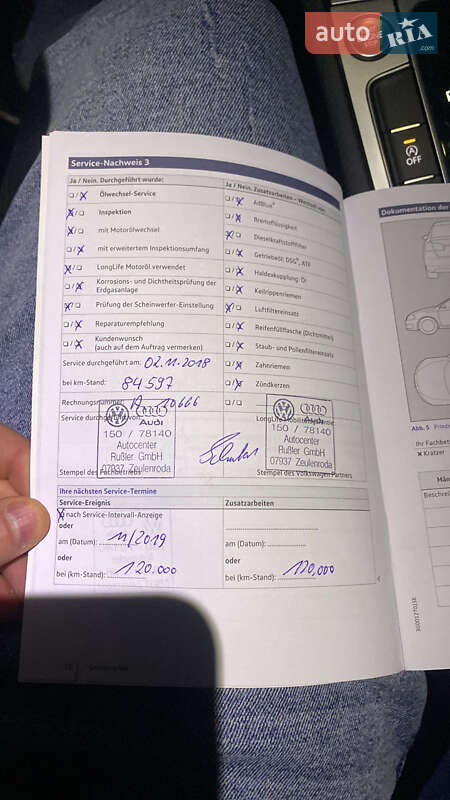 auto RIA .com
A OFF
Service-Nachweis 3
Ja / Nein. Durchgeführt wurde:
Ölwechsel-Service
Inspektion
mit Motorölwechsel
mit erweitertem Inspektionsumfang
LongLife Motoröl verwendet
Korrosions- und Dichtheitsprüfung der
Erdgasanlage
Prüfung der Scheinwerfer-Einstellung
Reparaturempfehlung
Kundenwunsch
(auch auf dem Auftrag vermerken!)
Service durchgeführt am: 02.11.2018
bei km-Stand: 84 597
Rechnungsnummer: A 10666
Service durchgeführt von:
Audi
150 / 78140
Autocenter
Rußler GmbH
07937 Zeulenroda
Stempel des Fachbetriebs
Ja / Nein. Zusatzarbeiten – Wechsel von:
AdBlue®
Bremsflüssigkeit
Dieselkraftstofffilter
Getriebeöl: DSG®, ATF
Haldexkupplung: Öl
Keilrippenriemen
Luftfiltereinsatz
Reifenfüllflasche (Dichtmittel)
Staub- und Pollenfiltereinsatz
Zahnriemen
Zündkerzen
Audi
150 / 78140
Autocenter
Rußler GmbH
07937 Zeulenroda
Stempel des Volkswagen Partners
Ihre nächsten Service-Termine
Service-Ereignis
nach Service-Intervall-Anzeige
oder
am (Datum): 11/2019
oder
bei (km-Stand): 120.000
Zusatzarbeiten
am (Datum):
oder
bei (km-Stand): 120,000
Dokumentation der
Abb. 5
Ihr Fachbet
× Kratzer
Män
Beschrei